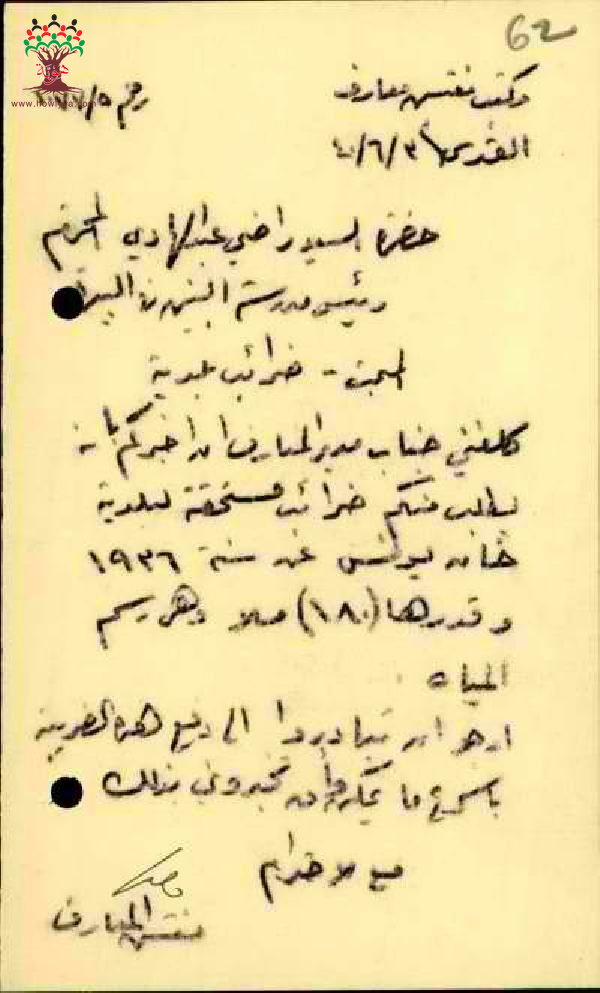 62
مكتب مفتش معارف
القدس ٣/٦/٤٠
رقم
www.howiyya.com
حضرة السيد راضي عبد الهادي المحترم
رئيس مدرسة البنين في البيرة
المبحث - ضرائب بلدية
كلفني جناب مدير المعارف ان اخبركم بانه
يطلب منكم ضرائب مستحقة لبلدية
خان يونس عن سنة ١٩٣٦
وقدرها (١٨٠) ملا وهي رسم
المياه
ارجو ان تبادروا الى دفع هذه الضريبة
باسرع ما يمكن وان تخبروني بذلك
مع الاحترام
مفتش المعارف